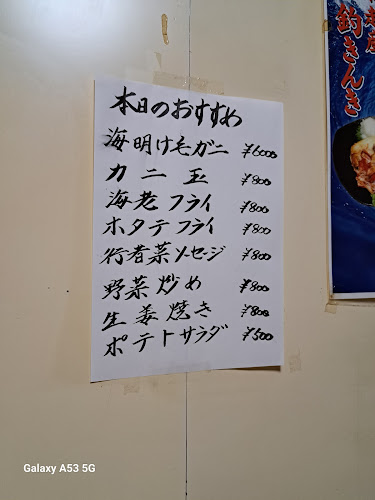 本日のおすすめ
海明け毛ガニ ¥6000
カニ玉 ¥800
海老フライ ¥800
ホタテフライ ¥800
行者菜ソセージ ¥800
野菜炒め ¥800
生姜焼き ¥800
ポテトサラダ ¥500
釣きんき
Galaxy A53 5G